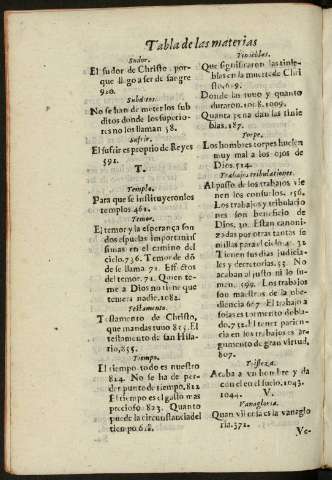 Tabla de las materias
Sudor.
El sudor de Christo, por-
que llegò a ser de sangre
910.
Subditos.
No se han de meter los sub
ditos donde los superio-
res no los llaman 58.
Sufrir.
El sufrir es proprio de Reyes
592.
T.
Templo.
Para que se instituyeron los
templos 462.
Temor.
El temor y la esperança son
dos espuelas importantis
simas en el camino del
cielo. 736. Temor de dõ
de se llama 71. Effectos
del temor. 71. Quien te-
me a Dios no tiene que
temer a nadie. 1082.
Testamento.
Testamento de Christo,
que mandas tuuo 875. El
testamento de san Hila-
rio, 855.
Tiempo.
El tiempo todo es nuestro
824. No se ha de per-
der punto de tiempo, 812
El tiempo es el gasto mas
precioso. 823. Quanto
puede la circunstancia del
tiempo
Tinieblas.
Que significaron las tinie-
blas en la muerte de Chri
sto, 619.
Donde las vuo y quanto
duraron. 1018. 1009.
Quanta pena dan las tinie
blas. 187.
Torpe.
Los hombres torpes huelen
muy mal a los ojos de
Dios. 514.
Trabajos tribulaciones.
Al passo de los trabajos vie
nen los consuelos. 156.
Los trabajos y tribulacio
nes son beneficio de
Dios. 30. Estan canoni-
zadas por otras tantas se
nillas para el cielo 4. 32
Tienen sus dias judicia-
les y decretorias. 53. No
acaban al justo ni lo su-
men. 599. Los trabajos
son maestros de la obe-
diencia 667. El trabajo a
solas es tormento dobla-
do, 732. El tener pacien-
cia en los trabajos es ar-
gumento de gran virtud.
807.
Tristeza.
Acaba a vn hombre y da
con el en el suelo, 1043.
1044.
V.
Vanagloria.
Quan vil cosa es la vanaglo
ria. 372.
Ve-